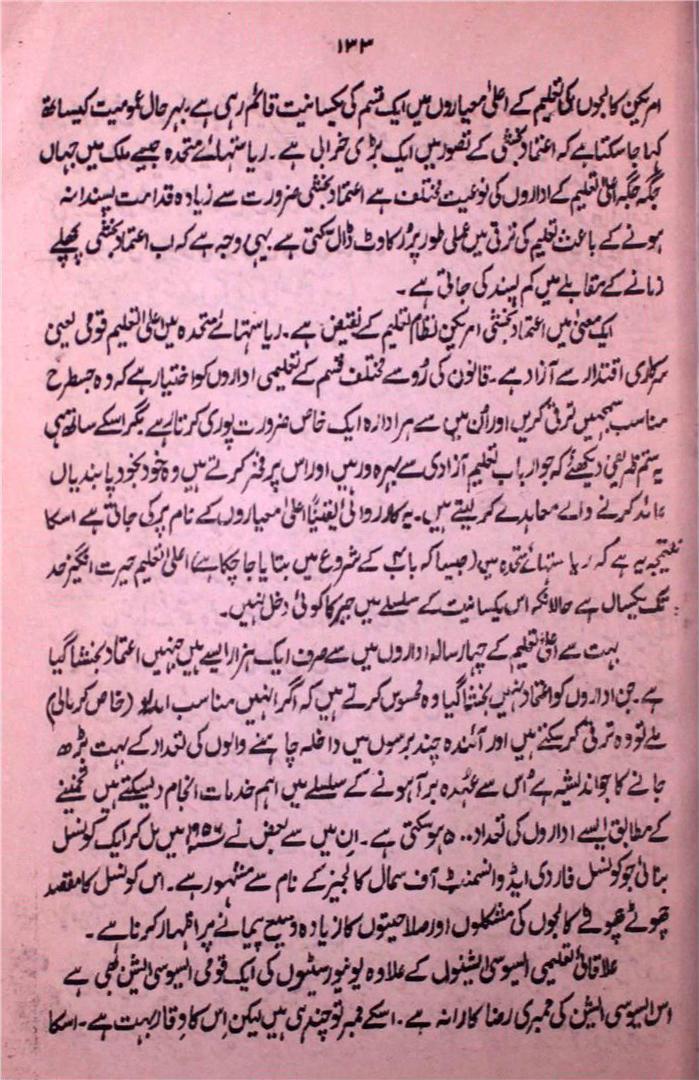 ۱۳۳
امریکن کالجوں کی تعلیم کے اعلیٰ معیاروں میں ایک قسم کی یکسانیت قائم رہی ہے۔ بہر حال عمومیت کیساتھ
کہا جا سکتا ہے کہ اعتماد بخشی کے تصور میں ایک بڑی خرابی ہے۔ ریاستہائے متحدہ جیسے ملک میں جہاں
جگہ جگہ اعلیٰ تعلیم کے اداروں کی نوعیت مختلف ہے اعتماد بخشی ضرورت سے زیادہ قدامت پسندانہ
ہونے کے باعث تعلیم کی ترقی میں عملی طور پر رکاوٹ ڈال سکتی ہے یہی وجہ ہے کہ اب اعتماد بخشی پچھلے
زمانے کے مقابلے میں کم پسند کی جاتی ہے۔
ایک معنیٰ میں اعتماد بخشی امریکن نظام تعلیم کے نقیض ہے۔ ریاستہائے متحدہ میں اعلیٰ تعلیم قومی یعنی
سرکاری اقتدار سے آزاد ہے۔ قانون کی رُو سے مختلف قسم کے تعلیمی اداروں کو اختیار ہے کہ وہ جسطرح
مناسب سمجھیں ترقی کریں اور اُن میں سے ہر ادارہ ایک خاص ضرورت پوری کرتا رہے مگر اسکے ساتھ ہی
یہ ستم ظریفی دیکھئے کہ جو ارباب تعلیم آزادی سے بہرہ ور ہیں اور اس پر فخر کرتے ہیں وہ خود بخود پابندیاں
عائد کرنے والے معاہدے کر لیتے ہیں۔ یہ کارروائی یقیناً اعلیٰ معیاروں کے نام پر کی جاتی ہے اسکا
نتیجہ یہ ہے کہ ریاستہائے متحدہ میں (جیسا کہ باب کے شروع میں بتایا جا چکا ہے) اعلیٰ تعلیم حیرت انگیز حد
تک یکساں ہے حالانکہ اس یکسانیت کے سلسلے میں جبر کا کوئی دخل نہیں۔
بہت سے اعلیٰ تعلیم کے چہار سالہ اداروں میں سے صرف ایک ہزار ایسے ہیں جنہیں اعتماد بخشا گیا
ہے۔ جن اداروں کو اعتماد نہیں بخشا گیا وہ محسوس کرتے ہیں کہ اگر انہیں مناسب امداد (خاص کر مالی)
ملے تو وہ ترقی کر سکتے ہیں اور آئندہ چند برسوں میں داخلہ چاہنے والوں کی تعداد کے بہت بڑھ
جانے کا جو اندیشہ ہے اُس سے عہدہ برآ ہونے کے سلسلے میں اہم خدمات انجام دے سکتے ہیں تخمینے
کے مطابق ایسے اداروں کی تعداد ۵۰۰ ہو سکتی ہے۔ اِن میں سے بعض نے ۱۹۵۶ء میں مل کر ایک کونسل
بنائی جو کونسل فار دی ایڈوانسمنٹ آف سمال کالجیز کے نام سے مشہور ہے۔ اس کونسل کا مقصد
چھوٹے چھوٹے کالجوں کی مشکلوں اور صلاحیتوں کا زیادہ وسیع پیمانے پر اظہار کرنا ہے۔
علاقائی تعلیمی ایسوسی ایشنوں کے علاوہ یونیورسٹیوں کی ایک قومی ایسوسی ایشن بھی ہے
اس ایسوسی ایشن کی ممبری رضاکارانہ ہے۔ اسکے ممبر تو چند ہی ہیں لیکن اِس کا وقار بہت ہے۔ اسکا